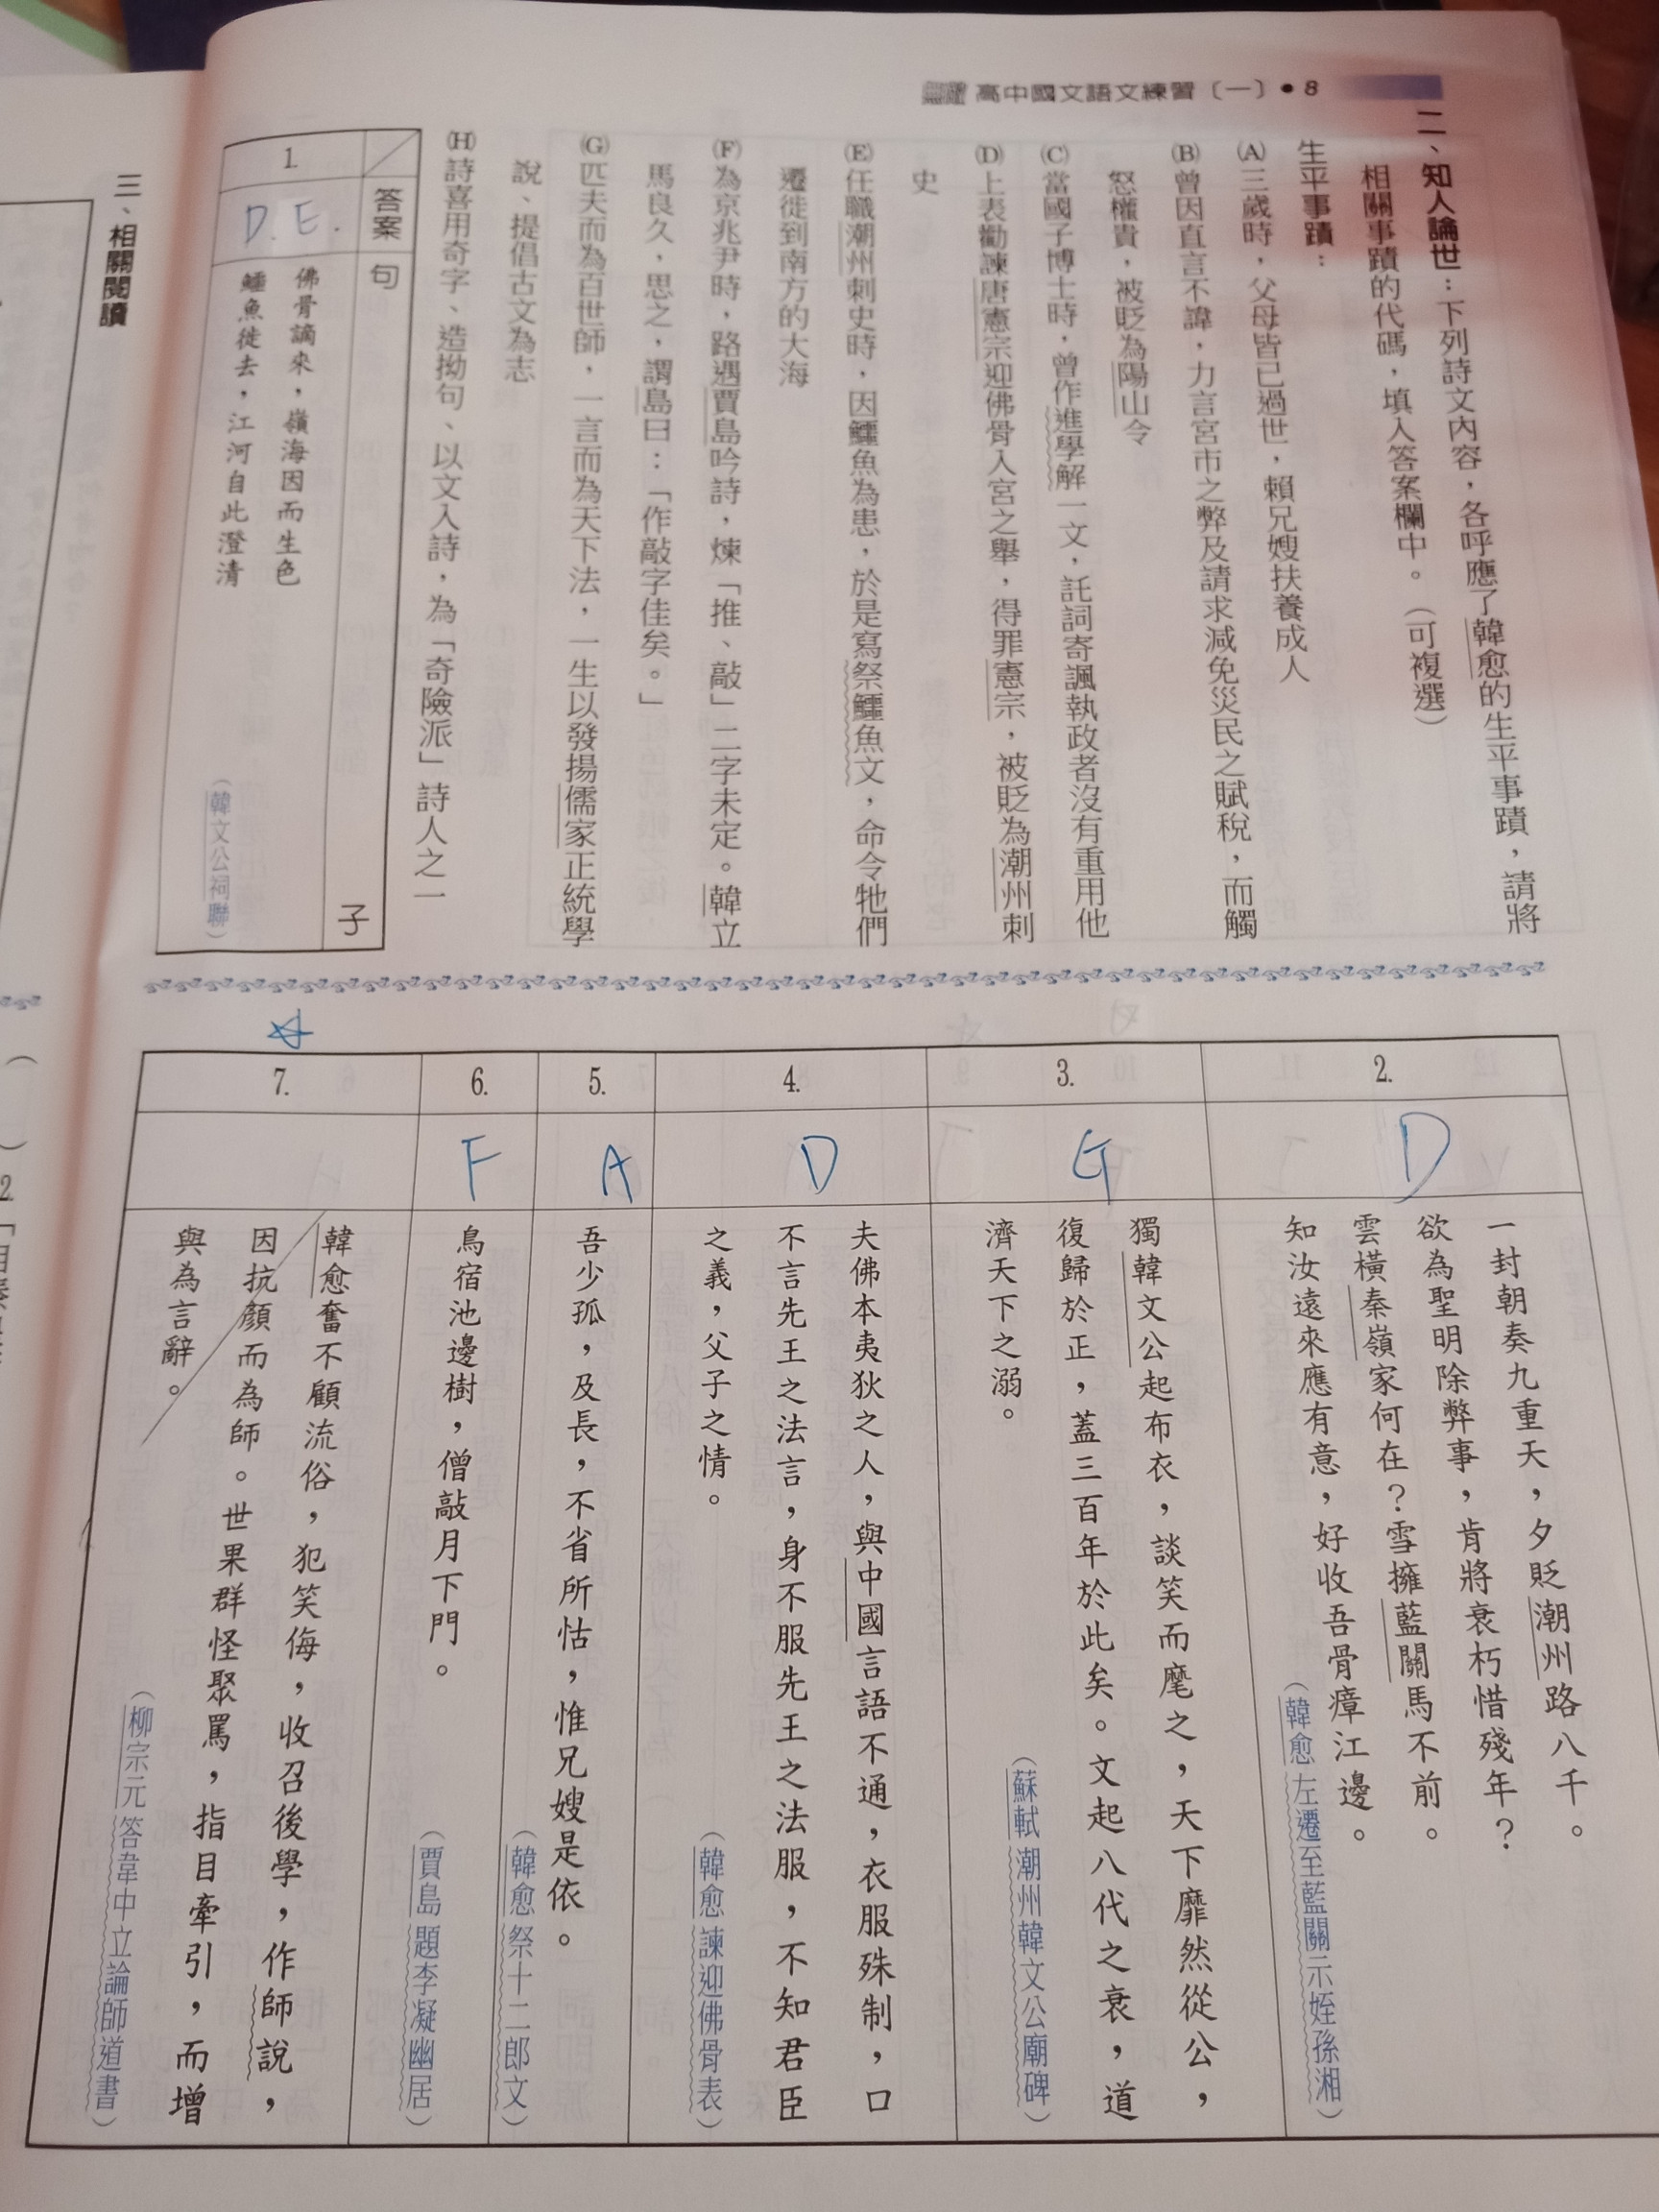 高中國文語文練習〔一〕•8
二、知人論世：下列詩文內容，各呼應了韓愈的生平事蹟，請將
相關事蹟的代碼，填入答案欄中。（可複選）
生平事蹟：
(A)三歲時，父母皆已過世，賴兄嫂扶養成人
(B)曾因直言不諱，力言宮市之弊及請求減免災民之賦稅，而觸
怒權貴，被貶為陽山令
(C)當國子博士時，曾作進學解一文，託詞寄諷執政者沒有重用他
(D)上表勸諫唐憲宗迎佛骨入宮之舉，得罪憲宗，被貶為潮州刺
史
(E)任職潮州刺史時，因鱷魚為患，於是寫祭鱷魚文，命令牠們
遷徙到南方的大海
(F)為京兆尹時，路遇賈島吟詩，煉「推、敲」二字未定。韓立
馬良久，思之，謂島曰：「作敲字佳矣。」
(G)匹夫而為百世師，一言而為天下法，一生以發揚儒家正統學
說、提倡古文為志
(H)詩喜用奇字、造拗句、以文入詩，為「奇險派」詩人之一
答案 句 子
1. D. E.
佛骨謫來，嶺海因而生色
鱷魚徙去，江河自此澄清
（韓文公祠聯）
2. D
一封朝奏九重天，夕貶潮州路八千。
欲為聖明除弊事，肯將衰朽惜殘年？
雲橫秦嶺家何在？雪擁藍關馬不前。
知汝遠來應有意，好收吾骨瘴江邊。
（韓愈左遷至藍關示姪孫湘）
3. G
獨韓文公起布衣，談笑而麾之，天下靡然從公，
復歸於正，蓋三百年於此矣。文起八代之衰，道
濟天下之溺。
（蘇軾潮州韓文公廟碑）
4. D
夫佛本夷狄之人，與中國言語不通，衣服殊制，口
不言先王之法言，身不服先王之法服，不知君臣
之義，父子之情。
（韓愈諫迎佛骨表）
5. A
吾少孤，及長，不省所怙，惟兄嫂是依。
（韓愈祭十二郎文）
6. F
鳥宿池邊樹，僧敲月下門。
（賈島題李凝幽居）
7.
韓愈奮不顧流俗，犯笑侮，收召後學，作師說，
因抗顏而為師。世果群怪聚罵，指目牽引，而增
與為言辭。
（柳宗元答韋中立論師道書）
三、相關閱讀
（ ）2.